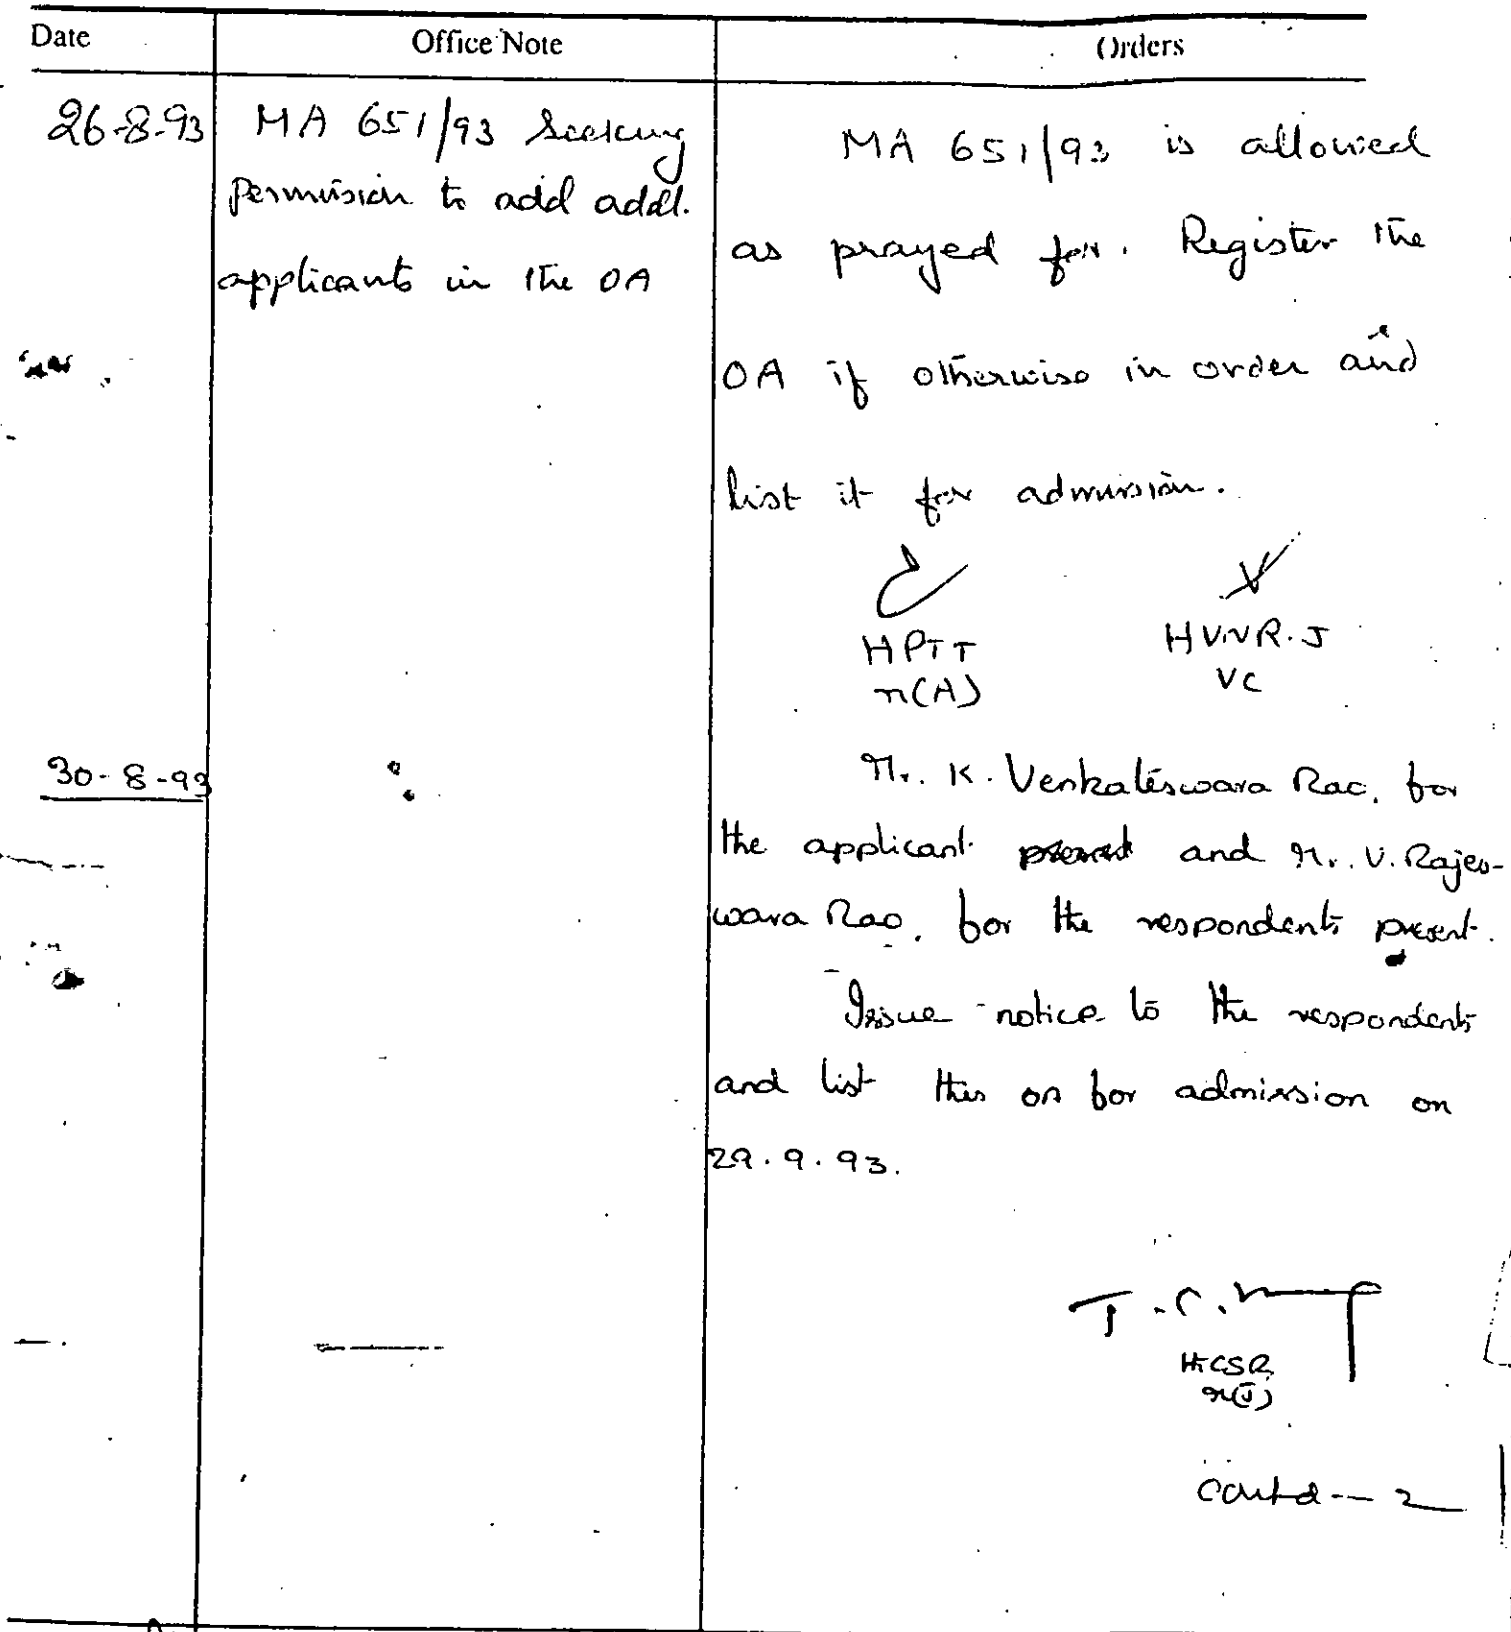 Date Office Note Orders
26-8-93
MA 651/93 Seeking
permission to add addl.
applicants in the OA
MA 651/93 is allowed
as prayed for. Register the
OA if otherwise in order and
list it for admission.
HPTT HVNR.J
M(A) VC
30-8-93
Mr. K. Venkateswara Rao, for
the applicant and Mr. V. Rajes-
wara Rao, for the respondents present.
Issue notice to the respondents
and list this OA for admission on
29.9.93.
HTCSR
M(J)
Contd--2